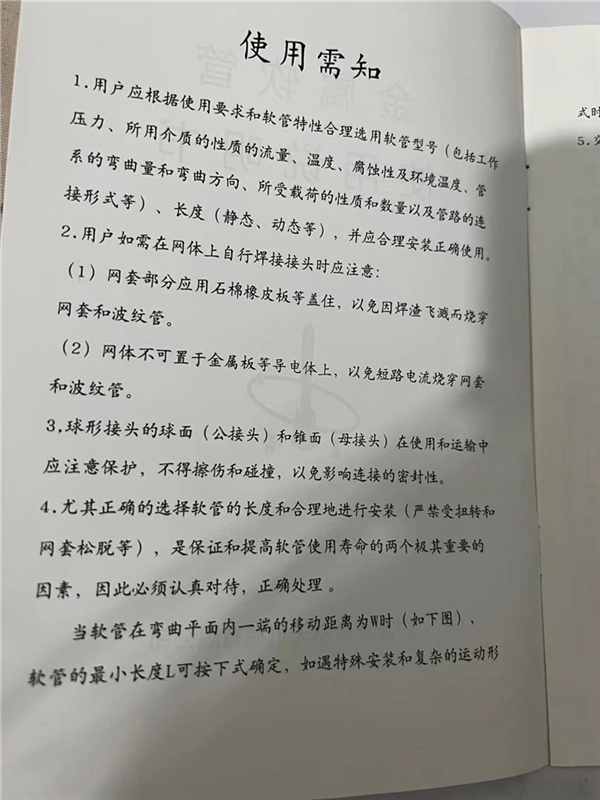 使用需知
1.用户应根据使用要求和软管特性合理选用软管型号（包括工作
压力、所用介质的性质的流量、温度、腐蚀性及环境温度、管
系的弯曲量和弯曲方向、所受载荷的性质和数量以及管路的连
接形式等）、长度（静态、动态等），并应合理安装正确使用。
2.用户如需在网体上自行焊接接头时应注意：
（1）网套部分应用石棉橡皮板等盖住，以免因焊渣飞溅而烧穿
网套和波纹管。
（2）网体不可置于金属板等导电体上，以免短路电流烧穿网套
和波纹管。
3.球形接头的球面（公接头）和锥面（母接头）在使用和运输中
应注意保护，不得擦伤和碰撞，以免影响连接的密封性。
4.尤其正确的选择软管的长度和合理地进行安装（严禁受扭转和
网套松脱等），是保证和提高软管使用寿命的两个极其重要的
因素，因此必须认真对待，正确处理。
当软管在弯曲平面内一端的移动距离为W时（如下图），
软管的最小长度L可按下式确定，如遇特殊安装和复杂的运动形
式时
5.